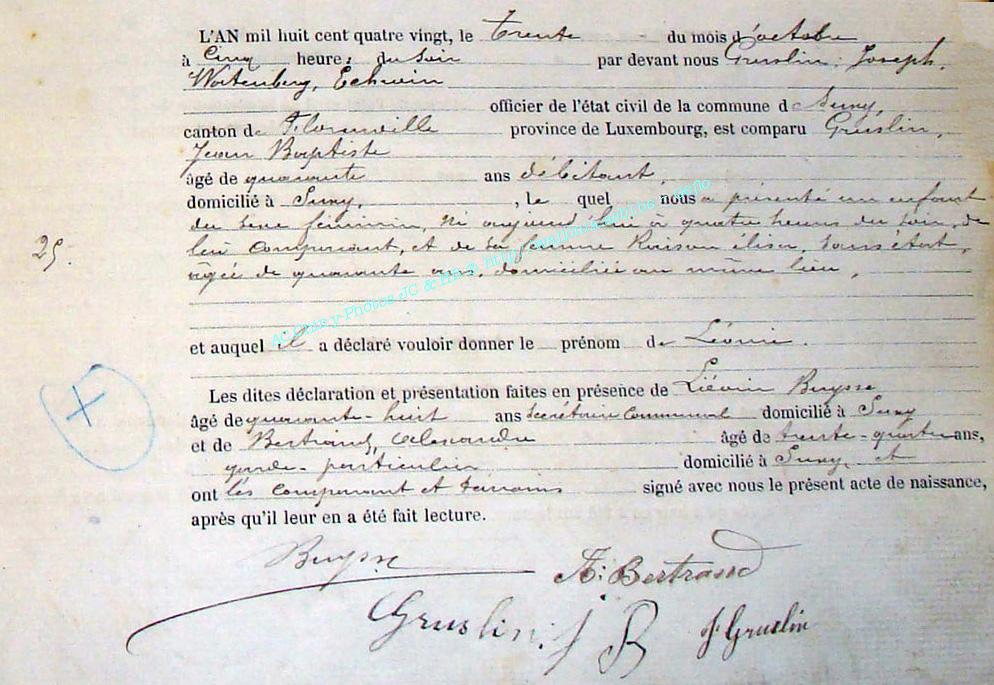 L'AN mil huit cent quatre vingt, le trente du mois d'octobre
à Cinq heures du soir par devant nous Gruslin, Joseph,
Echevin
officier de l'état civil de la commune de Suxy,
canton de Florenville province de Luxembourg, est comparu Gruslin,
Jean Baptiste
âgé de quarante ans débitant,
domicilié à Suxy, , le quel nous a présenté un enfant
du sexe féminin, né aujourd'hui à quatre heures du soir, de
lui comparant, et de sa femme Raison élisa, sans état,
25.
âgée de quarante ans, domiciliée au même lieu,
et auquel il a déclaré vouloir donner le prénom de Léonie.
Les dites déclaration et présentation faites en présence de Liévin Buysse
âgé de quarante-huit ans Secrétaire Communal domicilié à Suxy
et de Bertrand, Alexandre âgé de trente-quatre ans,
garde-particulier domicilié à Suxy, et
ont les comparant et témoins signé avec nous le présent acte de naissance,
après qu'il leur en a été fait lecture.
Buysse
A: Bertrand
Gruslin: J B
J Gruslin